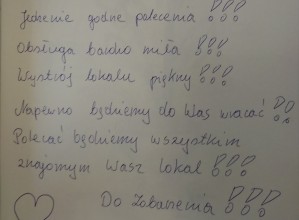 Jedzenie godne polecenia !!!
Obsługa bardzo miła !!!
Wystrój lokalu piękny !!!
Napewno będziemy do Was wracać !!!
Polecać będziemy wszystkim
znajomym Wasz lokal !!!
Do Zobaczenia !!!